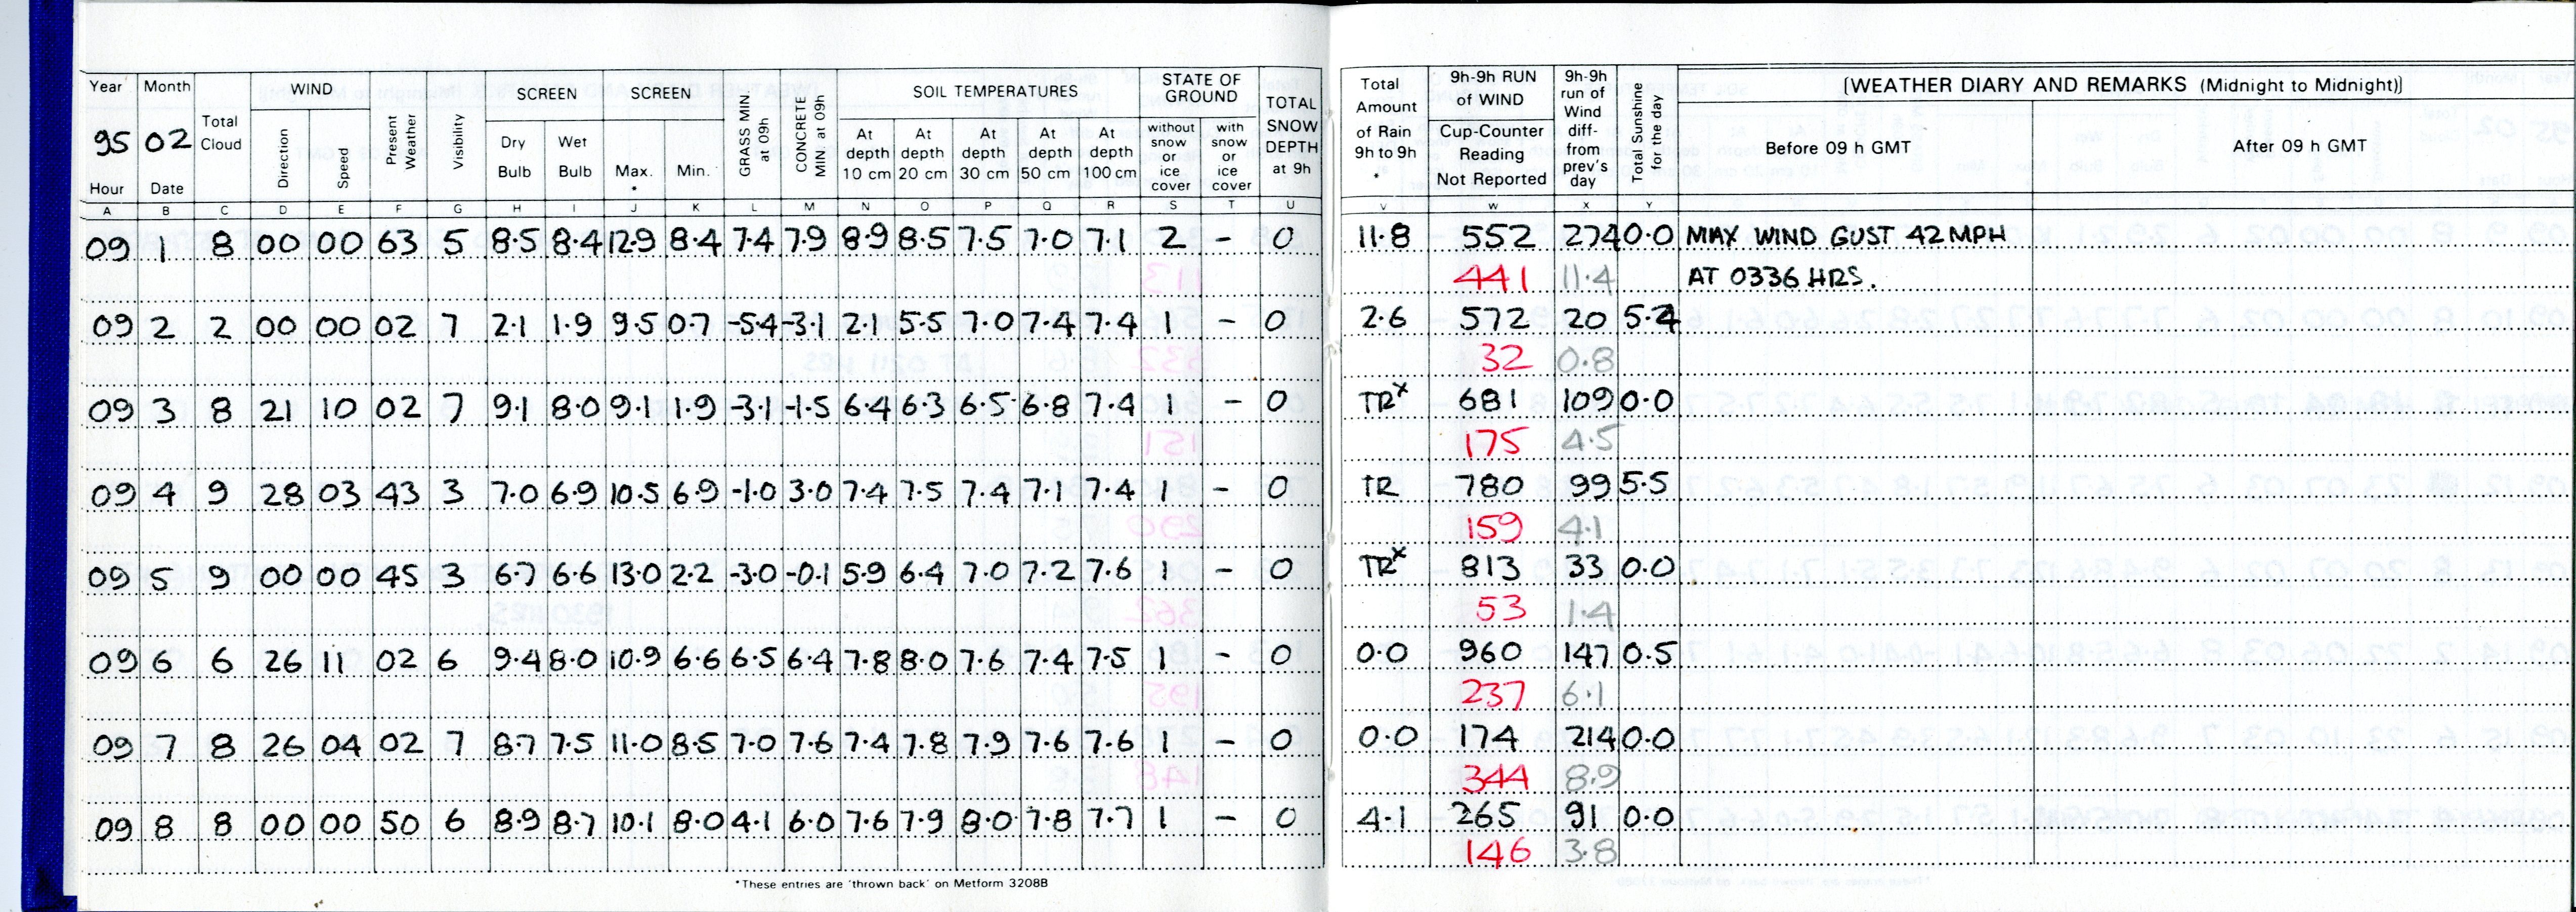 Year Month Total Cloud WIND Present Weather Visibility SCREEN SCREEN GRASS MIN. at 09h CONCRETE MIN at 09h SOIL TEMPERATURES STATE OF GROUND TOTAL SNOW DEPTH at 9h Total Amount of Rain 9h to 9h * 9h-9h RUN of WIND 9h-9h run of Wind diff- from prev's day Total Sunshine for the day [WEATHER DIARY AND REMARKS (Midnight to Midnight)]
95 02 Direction Speed Dry Bulb Wet Bulb Max. * Min. At depth 10 cm At depth 20 cm At depth 30 cm At depth 50 cm At depth 100 cm without snow or ice cover with snow or ice cover Cup-Counter Reading Not Reported Before 09 h GMT After 09 h GMT
Hour Date
A B C D E F G H I J K L M N O P Q R S T U V W X Y
09 1 8 00 00 63 5 8.5 8.4 12.9 8.4 7.4 7.9 8.9 8.5 7.5 7.0 7.1 2 - 0 11.8 552 274 0.0 MAX WIND GUST 42 MPH
441 11.4 AT 0336 HRS.
09 2 2 00 00 02 7 2.1 1.9 9.5 0.7 -5.4 -3.1 2.1 5.5 7.0 7.4 7.4 1 - 0 2.6 572 20 5.4
32 0.8
09 3 8 21 10 02 7 9.1 8.0 9.1 1.9 -3.1 -1.5 6.4 6.3 6.5 6.8 7.4 1 - 0 TRx 681 109 0.0
175 4.5
09 4 9 28 03 43 3 7.0 6.9 10.5 6.9 -1.0 3.0 7.4 7.5 7.4 7.1 7.4 1 - 0 TR 780 99 5.5
159 4.1
09 5 9 00 00 45 3 6.7 6.6 13.0 2.2 -3.0 -0.1 5.9 6.4 7.0 7.2 7.6 1 - 0 TRx 813 33 0.0
53 1.4
09 6 6 26 11 02 6 9.4 8.0 10.9 6.6 6.5 6.4 7.8 8.0 7.6 7.4 7.5 1 - 0 0.0 960 147 0.5
237 6.1
09 7 8 26 04 02 7 8.7 7.5 11.0 8.5 7.0 7.6 7.4 7.8 7.9 7.6 7.6 1 - 0 0.0 174 214 0.0
344 8.9
09 8 8 00 00 50 6 8.9 8.7 10.1 8.0 4.1 6.0 7.6 7.9 8.0 7.8 7.7 1 - 0 4.1 265 91 0.0
146 3.8
*These entries are 'thrown back' on Metform 3208B